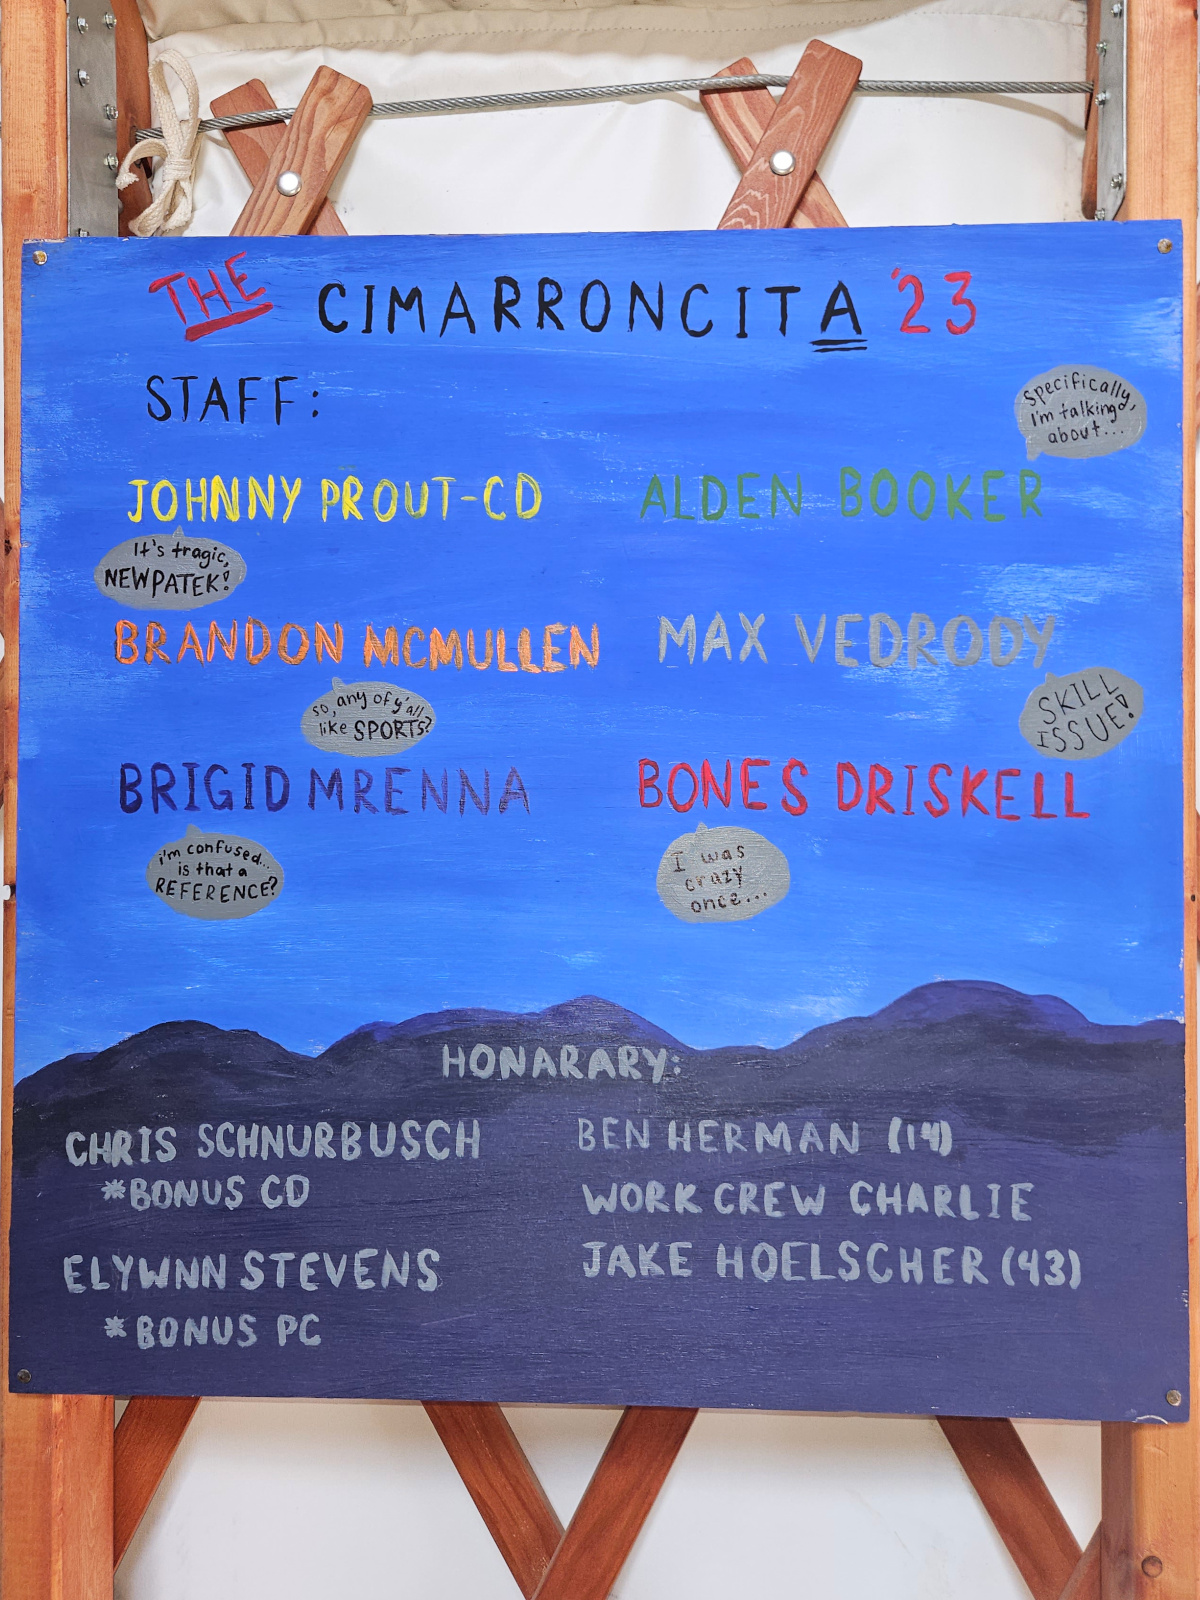 THE CIMARRONCITA '23
STAFF:
Specifically,
I'm talking
about...
JOHNNY PROUT-CD
ALDEN BOOKER
It's tragic,
NEWPATEK!
BRANDON MCMULLEN
MAX VEDRODY
so, any of y'all
like SPORTS?
SKILL
ISSUE!
BRIGID MRENNA
BONES DRISKELL
i'm confused...
is that a
REFERENCE?
I was
crazy
once...
HONARARY:
CHRIS SCHNURBUSCH
*BONUS CD
ELYWNN STEVENS
*BONUS PC
BEN HERMAN (14)
WORK CREW CHARLIE
JAKE HOELSCHER (43)